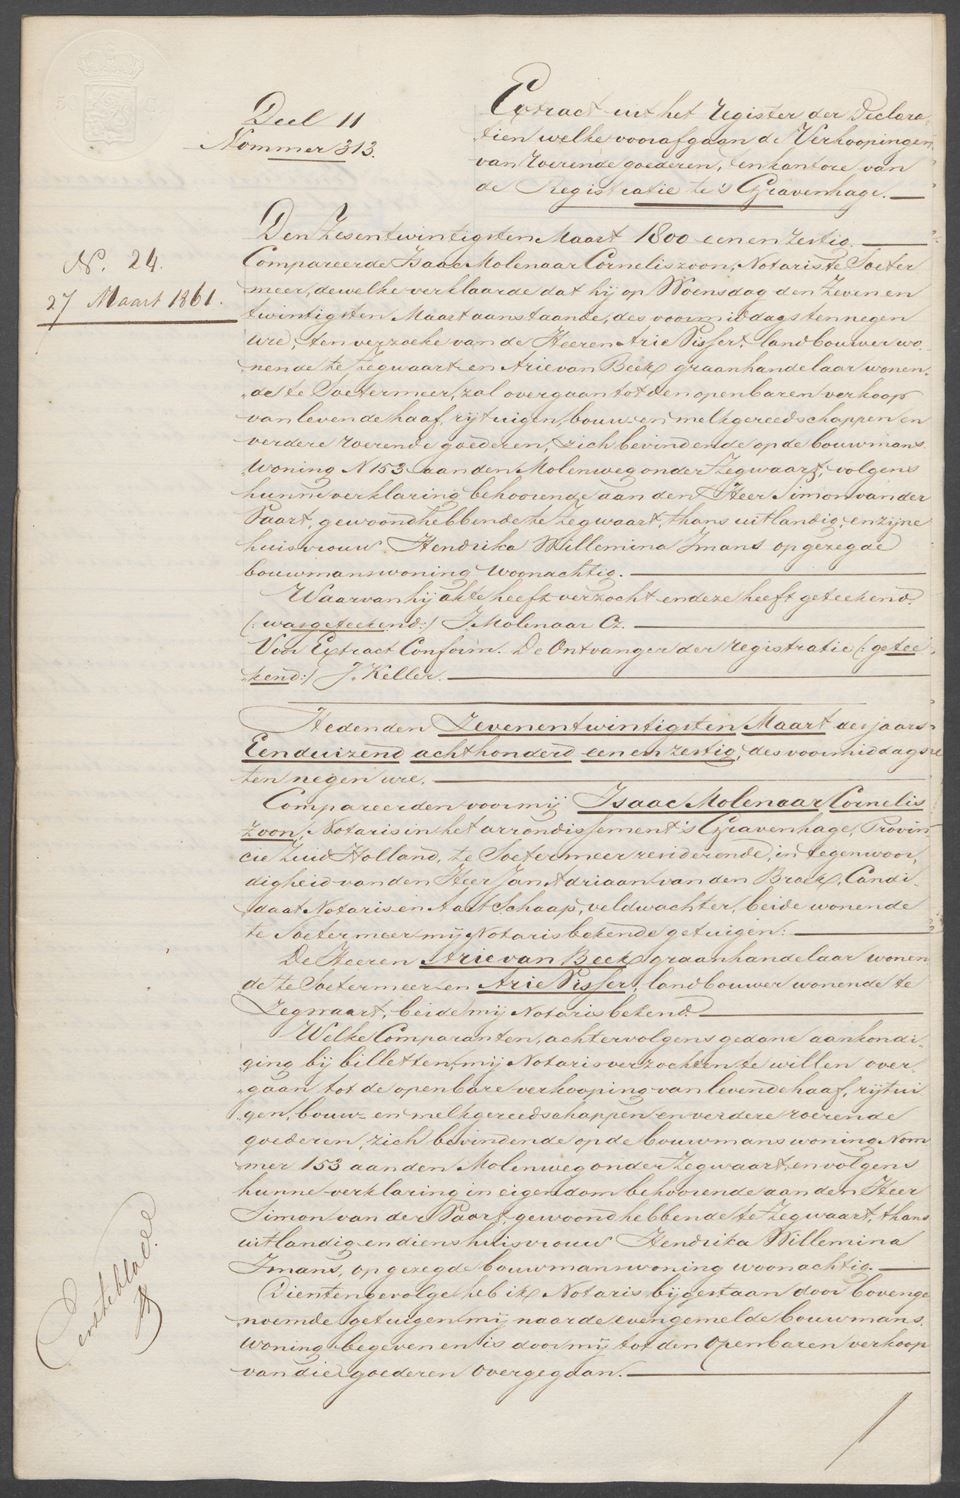 Deel 11
Nommer 313.
Extract uit het register der Declara-
tien welke voorafgaan de Verkoopingen
van roerende goederen, ten kantore van
de Registratie te 's Gravenhage.
N. 24.
27 Maart 1861.
Den Zesentwintigsten Maart 1800 een en zestig.
Compareerde Isaac Molenaar Corneliszoon, Notaris te Soeter
meer, dewelke verklaarde dat hij op Woensdag den Zeven en
twintigsten Maart aanstaande, des voormiddags ten negen
ure, ten verzoeke van de Heeren Arie Visser, landbouwer wo-
nende te Zegwaart en Arie van Beek graanhandelaar wonen-
de te Soetermeer, zal overgaan tot den openbaren verkoop
van levende haaf, rijtuigen, bouw- en melkgereedschappen en
verdere roerende goederen, zich bevindende op de bouwmans
woning N 153 aan den Molenweg onder Zegwaart, volgens
hunne verklaring behoorende aan den Heer Simon van der
Paart, gewoond hebbende te Zegwaart, thans uitlandig, en zijne
huisvrouw Hendrika Willemina Imans op gezegde
bouwmanswoning woonachtig.
Waarvan hij akte heeft verzocht en deze heeft geteekend.
(:was geteekend:) I. Molenaar Cz.
Voor Extract Conform. De Ontvanger der registratie (:getee-
kend:) J. Keller.
Heden den Zevenentwintigsten Maart des jaars
Eenduizend achthonderd een en zestig, des voormiddags
ten negen ure.
Compareerden voor mij Isaac Molenaar Cornelis
zoon, Notaris in het arrondissement 's Gravenhage, Provin-
cie Zuid Holland, te Soetermeer resideerende, in tegenwoor-
digheid van den Heer Jan Adriaan van den Broek, Candi-
daat Notaris en Aart Schaap, veldwachter, beide wonende
te Soetermeer mij Notaris bekende getuigen:
De Heeren Arie van Beek graanhandelaar wonen
de te Soetermeer en Arie Visser, landbouwer wonende te
Zegwaart, beide mij Notaris bekend.
Welke Comparanten, achtervolgens gedane aankondi-
ging bij billetten, mij Notaris verzochten te willen over-
gaan tot de openbare verkooping van levende haaf, rijtui-
gen, bouw- en melkgereedschappen en verdere roerende
goederen, zich bevindende op de bouwmanswoning Nom
mer 153 aan den Molenweg onder Zegwaart, en volgens
hunne verklaring in eigendom behoorende aan den Heer
Simon van der Paart, gewoond hebbende te Zegwaart, thans
uitlandig en diens huisvrouw Hendrika Willemina
Imans, op gezegde bouwmanswoning woonachtig.
Dientengevolge heb ik Notaris, bijgestaan door bovenge
noemde getuigen mij naar de evengemelde bouwmans
woning begeven en is door mij tot den openbaren verkoop
van die goederen overgegaan.
Eerste blad.